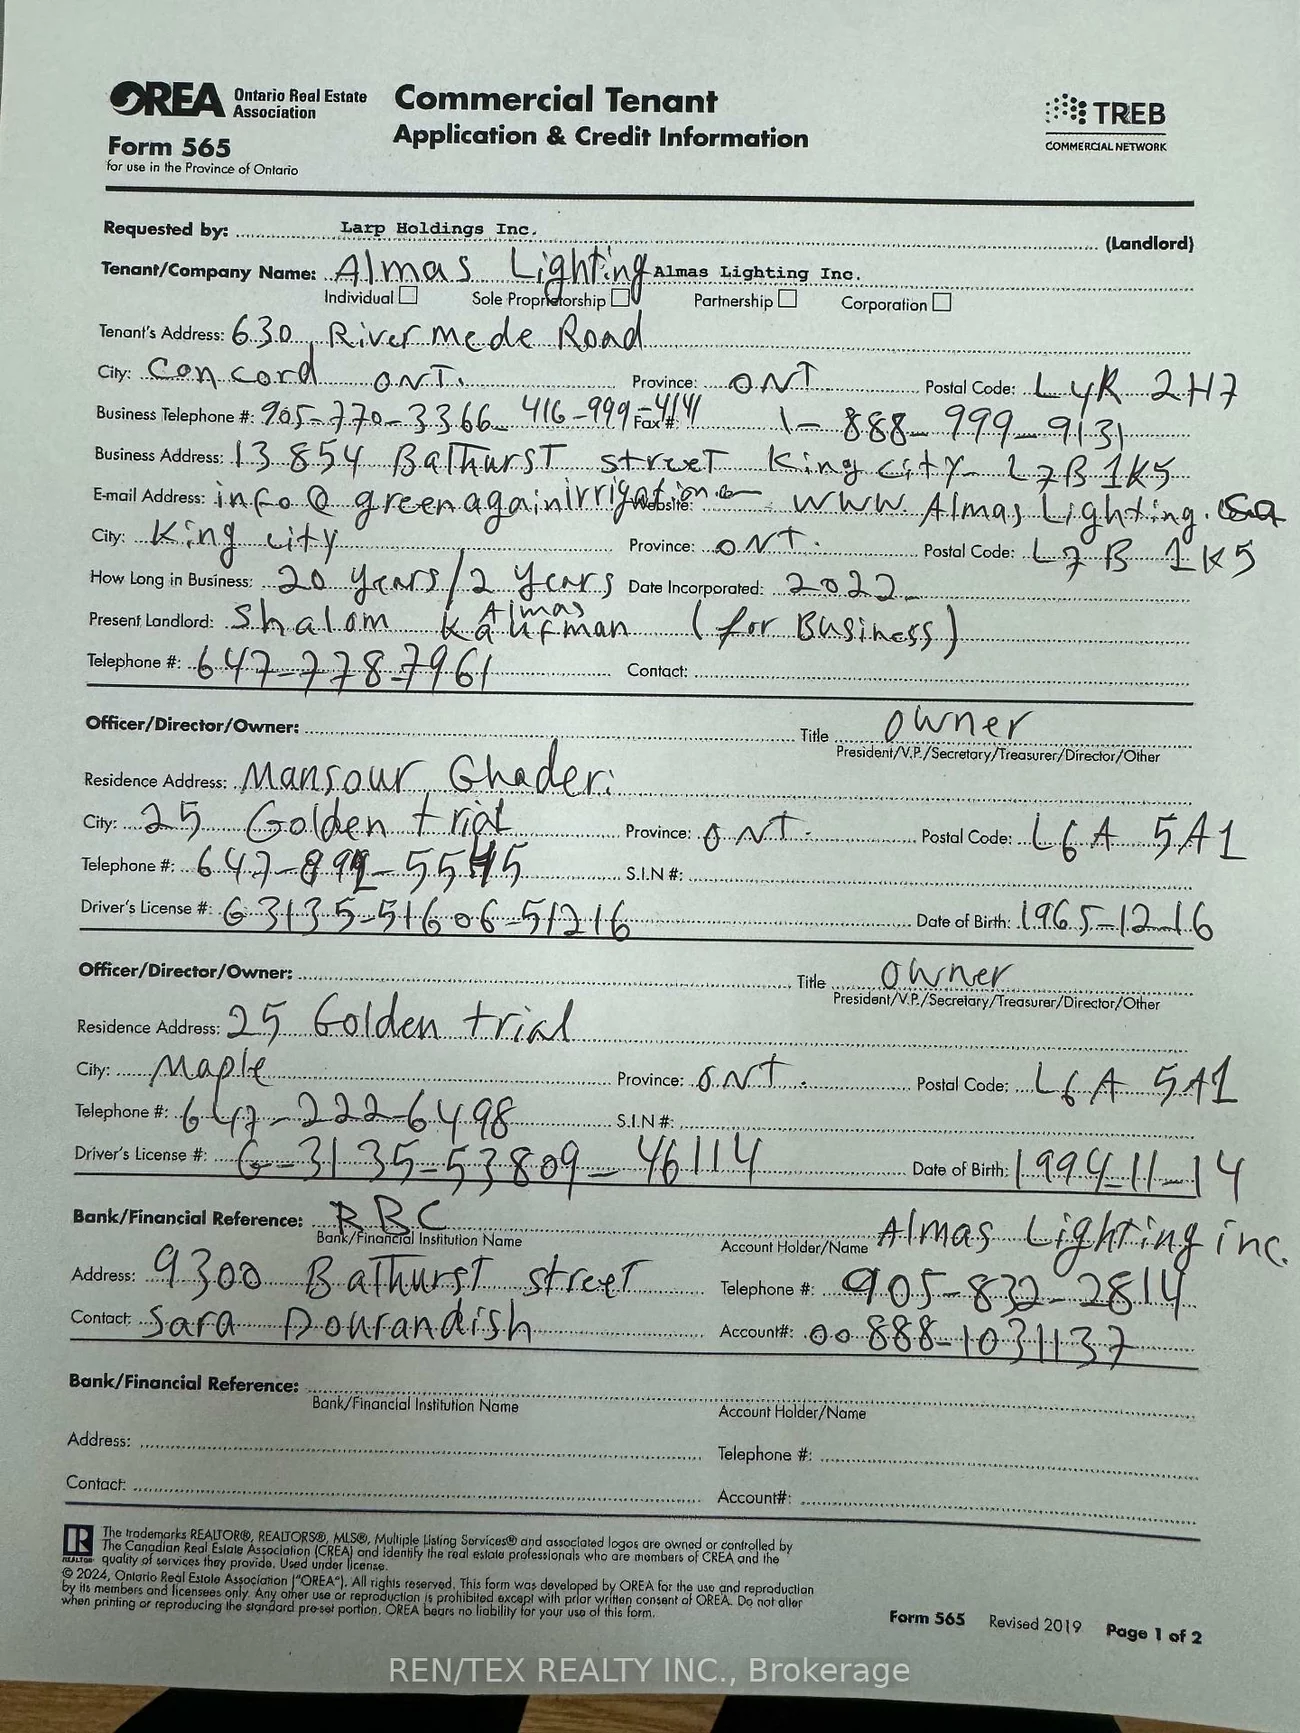 OREA Ontario Real Estate Association
Commercial Tenant
Application & Credit Information
TREB
COMMERCIAL NETWORK
Form 565
for use in the Province of Ontario
Requested by: Larp Holdings Inc. (Landlord)
Tenant/Company Name: Almas Lighting Almas Lighting Inc.
Individual Sole Proprietorship Partnership Corporation
Tenant's Address: 630 Rivermede Road
City: Concord ONT. Province: ONT Postal Code: L4K 2H7
Business Telephone #: 905-770-3366 416-999-4141 Fax #: 1-888-999-9131
Business Address: 13854 Bathurst street King city L7B 1K5
E-mail Address: info@greenagainirrigation. Website: www.AlmasLighting.
City: King city Province: ONT. Postal Code: L7B 1K5
How Long in Business: 20 years/2 years Date Incorporated: 2022
Almas
Present Landlord: Shalom Kaufman (for Business)
Telephone #: 647-778-7961 Contact:
Officer/Director/Owner: Title owner
President/V.P./Secretary/Treasurer/Director/Other
Residence Address: Mansour Ghaderi
City: 25 Golden trial Province: ONT. Postal Code: L6A 5A1
Telephone #: S.I.N #:
Driver's License #: G3135-51606-51216 Date of Birth: 1965-12-16
Officer/Director/Owner: Title owner
President/V.P./Secretary/Treasurer/Director/Other
Residence Address: 25 Golden trial
City: Maple Province: ONT. Postal Code: L6A 5A1
Telephone #: 647-222-6498 S.I.N #:
Driver's License #: G-3135-53809-46114 Date of Birth: 1994-11-14
Bank/Financial Reference: RBC Almas Lighting inc.
Bank/Financial Institution Name Account Holder/Name
Address: 9300 Bathurst street Telephone #: 905-832-2814
Contact: Sara Dourandish Account#: 00888-1031137
Bank/Financial Reference:
Bank/Financial Institution Name Account Holder/Name
Address: Telephone #:
Contact: Account#:
The trademarks REALTOR®, REALTORS®, MLS®, Multiple Listing Services® and associated logos are owned or controlled by
The Canadian Real Estate Association (CREA) and identify the real estate professionals who are members of CREA and the
REALTOR quality of services they provide. Used under license.
© 2024, Ontario Real Estate Association ("OREA"). All rights reserved. This form was developed by OREA for the use and reproduction
by its members and licensees only. Any other use or reproduction is prohibited except with prior written consent of OREA. Do not alter
when printing or reproducing the standard pre-set portion. OREA bears no liability for your use of this form.
Form 565 Revised 2019 Page 1 of 2
REN/TEX REALTY INC., Brokerage